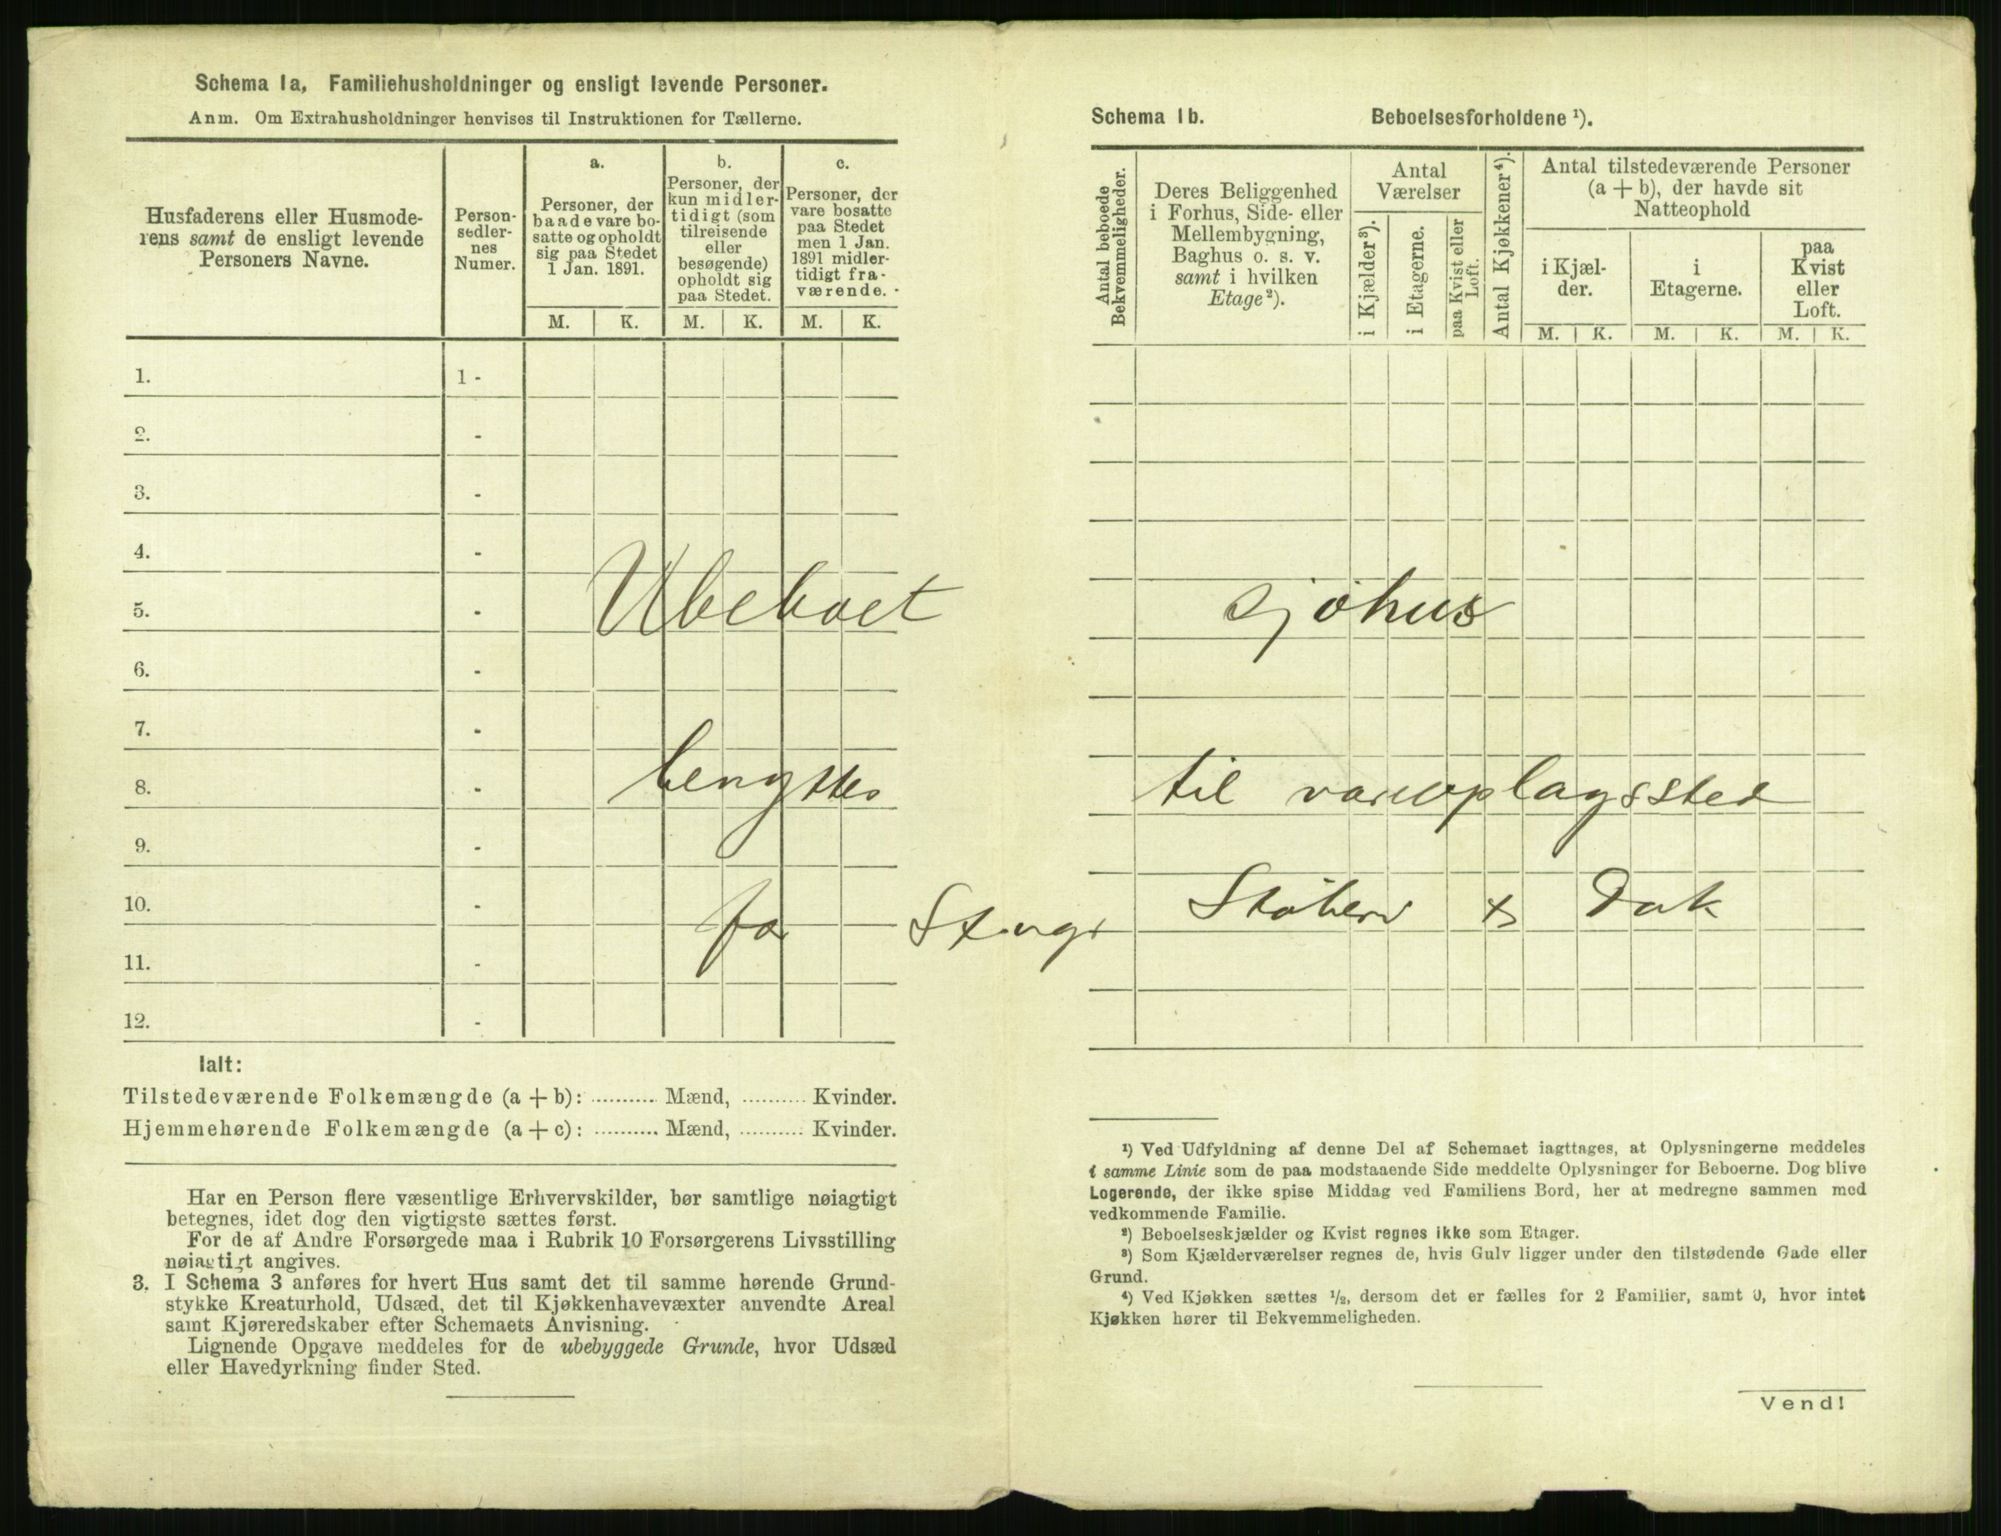 Schema 1a, Familiehusholdninger og ensligt levende Personer.
Anm. Om Extrahusholdninger henvises til Instruktionen for Tællerne.
Husfaderens eller Husmode-
rens samt de ensligt levende
Personers Navne.
Person-
sedler-
nes
Numer.
a.
Personer, der
baade vare bo-
satte og opholdt
sig paa Stedet
1 Jan. 1891.
b.
Personer, der
kun midler-
tidigt (som
tilreisende
eller
besøgende)
opholdt sig
paa Stedet.
c.
Personer, der
vare bosatte
paa Stedet
men 1 Jan.
1891 midler-
tidigt fra-
værende.
M. K. M. K. M. K.
1. 1 -
2. -
3. -
4. -
5. - Ubeboet
6. -
7. -
8. -
9. -
10. -
11. -
12. -
Ialt:
Tilstedeværende Folkemængde (a + b): .......... Mænd, .......... Kvinder.
Hjemmehørende Folkemængde (a + c): .......... Mænd, .......... Kvinder.
Har en Person flere væsentlige Erhvervskilder, bør samtlige nøiagtigt
betegnes, idet dog den vigtigste sættes først.
For de af Andre Forsørgede maa i Rubrik 10 Forsørgerens Livsstilling
nøiagtigt angives.
3. I Schema 3 anføres for hvert Hus samt det til samme hørende Grund-
stykke Kreaturhold, Udsæd, det til Kjøkkenhavevæxter anvendte Areal
samt Kjøreredskaber efter Schemaets Anvisning.
Lignende Opgave meddeles for de ubebyggede Grunde, hvor Udsæd
eller Havedyrkning finder Sted.
Schema 1b. Beboelsesforholdene ¹).
Antal beboede
Bekvemmeligheder.
Deres Beliggenhed
i Forhus, Side- eller
Mellembygning,
Baghus o. s. v.
samt i hvilken
Etage ²).
Antal
Værelser
i Kjælder ³).
i Etagerne.
paa Kvist eller
Loft.
Antal Kjøkkener ⁴).
Antal tilstedeværende Personer
(a + b), der havde sit
Natteophold
i Kjæl-
der.
i
Etagerne.
paa
Kvist
eller
Loft.
M. K. M. K. M. K.
sjøhus
til vareoplagssted
¹) Ved Udfyldning af denne Del af Schemaet iagttages, at Oplysningerne meddeles
i samme Linie som de paa modstaaende Side meddelte Oplysninger for Beboerne. Dog blive
Logerende, der ikke spise Middag ved Familiens Bord, her at medregne sammen med
vedkommende Familie.
²) Beboelseskjælder og Kvist regnes ikke som Etager.
³) Som Kjælderværelser regnes de, hvis Gulv ligger under den tilstødende Gade eller
Grund.
⁴) Ved Kjøkken sættes ¹/₂, dersom det er fælles for 2 Familier, samt 0, hvor intet
Kjøkken hører til Bekvemmeligheden.
Vend!